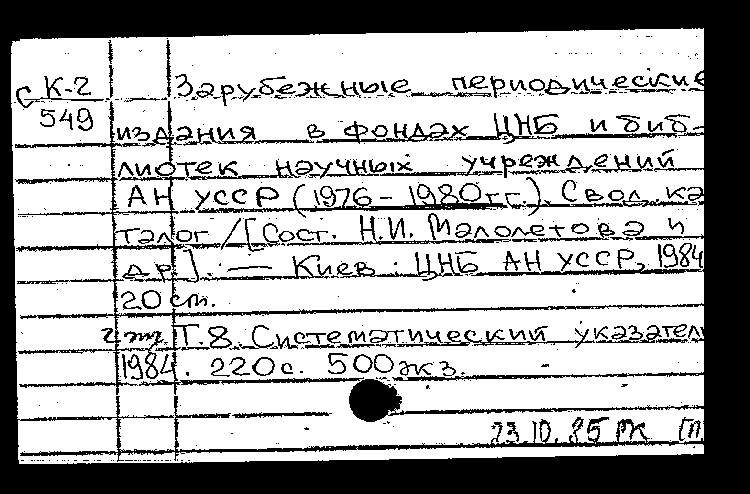 С К-2
549
Зарубежные периодические
издания в фондах ЦНБ и биб-
лиотек научных учреждений
АН УССР (1976-1980гг.). Свод. ка
талог / [Сост. Н.И. Малолетова и
др.]. — Киев : ЦНБ АН УССР, 1984
20 cm.
Т.8. Систематический указатель
1984. 220с. 500экз.
23.10.85